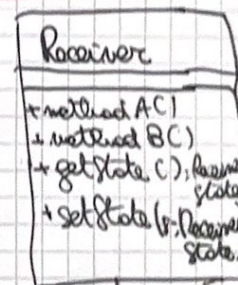 Receiver
+ method A()
+ method B()
+ getState(): Receiver
State
+ setState(s: Receiver
State